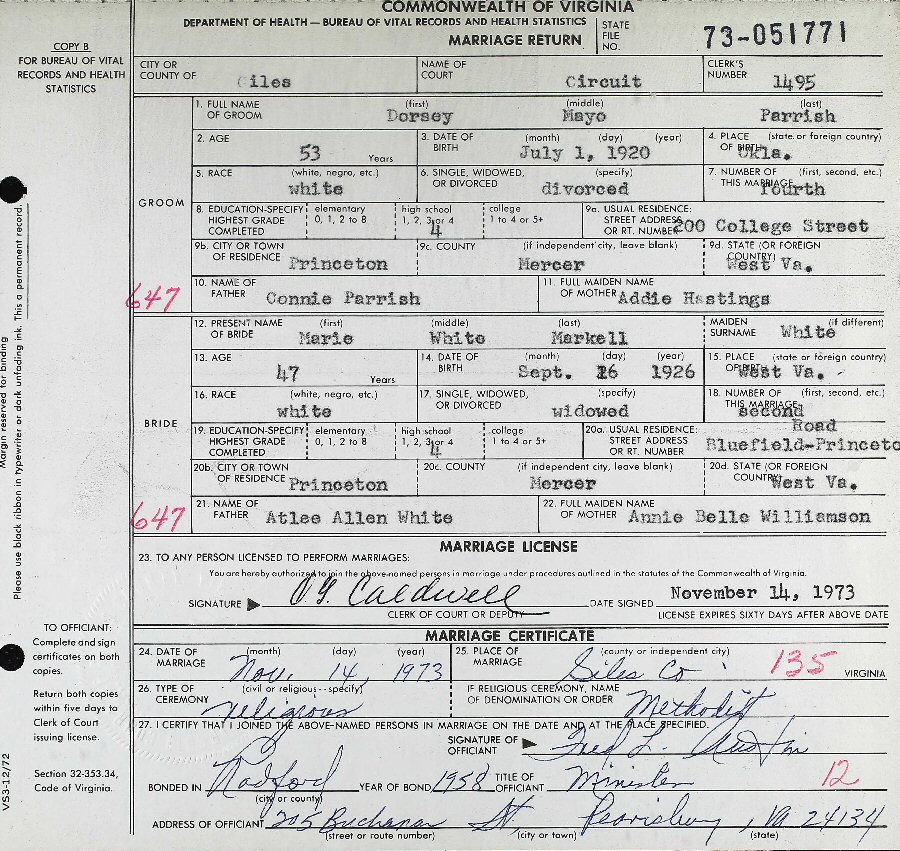 COMMONWEALTH OF VIRGINIA
DEPARTMENT OF HEALTH — BUREAU OF VITAL RECORDS AND HEALTH STATISTICS
MARRIAGE RETURN
STATE FILE NO. 73-051771
COPY B
FOR BUREAU OF VITAL
RECORDS AND HEALTH
STATISTICS
CITY OR COUNTY OF Giles NAME OF COURT Circuit CLERK'S NUMBER 1495
GROOM
1. FULL NAME OF GROOM (first) Dorsey (middle) Mayo (last) Parrish
2. AGE 53 Years 3. DATE OF BIRTH (month) (day) (year) July 1, 1920 4. PLACE OF BIRTH (state or foreign country) Okla.
5. RACE (white, negro, etc.) white 6. SINGLE, WIDOWED, OR DIVORCED (specify) divorced 7. NUMBER OF THIS MARRIAGE (first, second, etc.) fourth
8. EDUCATION-SPECIFY HIGHEST GRADE COMPLETED elementary 0, 1, 2 to 8 high school 1, 2, 3, or 4 4 college 1 to 4 or 5+ 9a. USUAL RESIDENCE: STREET ADDRESS OR RT. NUMBER 200 College Street
9b. CITY OR TOWN OF RESIDENCE Princeton 9c. COUNTY (if independent city, leave blank) Mercer 9d. STATE (OR FOREIGN COUNTRY) West Va.
647
10. NAME OF FATHER Connie Parrish 11. FULL MAIDEN NAME OF MOTHER Addie Hastings
BRIDE
12. PRESENT NAME OF BRIDE (first) Marie (middle) White (last) Markell MAIDEN SURNAME (if different) White
13. AGE 47 Years 14. DATE OF BIRTH (month) (day) (year) Sept. 26 1926 15. PLACE OF BIRTH (state or foreign country) West Va.
16. RACE (white, negro, etc.) white 17. SINGLE, WIDOWED, OR DIVORCED (specify) widowed 18. NUMBER OF THIS MARRIAGE (first, second, etc.) second
19. EDUCATION-SPECIFY HIGHEST GRADE COMPLETED elementary 0, 1, 2 to 8 high school 1, 2, 3, or 4 4 college 1 to 4 or 5+ 20a. USUAL RESIDENCE: STREET ADDRESS OR RT. NUMBER Road Bluefield-Princeto
20b. CITY OR TOWN OF RESIDENCE Princeton 20c. COUNTY (if independent city, leave blank) Mercer 20d. STATE (OR FOREIGN COUNTRY) West Va.
647
21. NAME OF FATHER Atlee Allen White 22. FULL MAIDEN NAME OF MOTHER Annie Belle Williamson
MARRIAGE LICENSE
23. TO ANY PERSON LICENSED TO PERFORM MARRIAGES:
You are hereby authorized to join the above-named persons in marriage under procedures outlined in the statutes of the Commonwealth of Virginia.
SIGNATURE Caldwell DATE SIGNED November 14, 1973
CLERK OF COURT OR DEPUTY LICENSE EXPIRES SIXTY DAYS AFTER ABOVE DATE
MARRIAGE CERTIFICATE
24. DATE OF MARRIAGE (month) (day) (year) Nov. 14, 1973 25. PLACE OF MARRIAGE (county or independent city) Giles Co 135 VIRGINIA
26. TYPE OF CEREMONY (civil or religious--specify) Religious IF RELIGIOUS CEREMONY, NAME OF DENOMINATION OR ORDER Methodist
27. I CERTIFY THAT I JOINED THE ABOVE-NAMED PERSONS IN MARRIAGE ON THE DATE AND AT THE PLACE SPECIFIED.
SIGNATURE OF OFFICIANT Fred L. Austin
BONDED IN Radford (city or county) YEAR OF BOND 1958 TITLE OF OFFICIANT Minister 12
ADDRESS OF OFFICIANT 205 Buchanan St, Pearisburg, Va 24134
(street or route number) (city or town) (state)
Margin reserved for binding
Please use black ribbon in typewriter or dark unfading ink. This a permanent record.
TO OFFICIANT:
Complete and sign
certificates on both
copies.
Return both copies
within five days to
Clerk of Court
issuing license.
Section 32-353.34,
Code of Virginia.
VS3-12/72